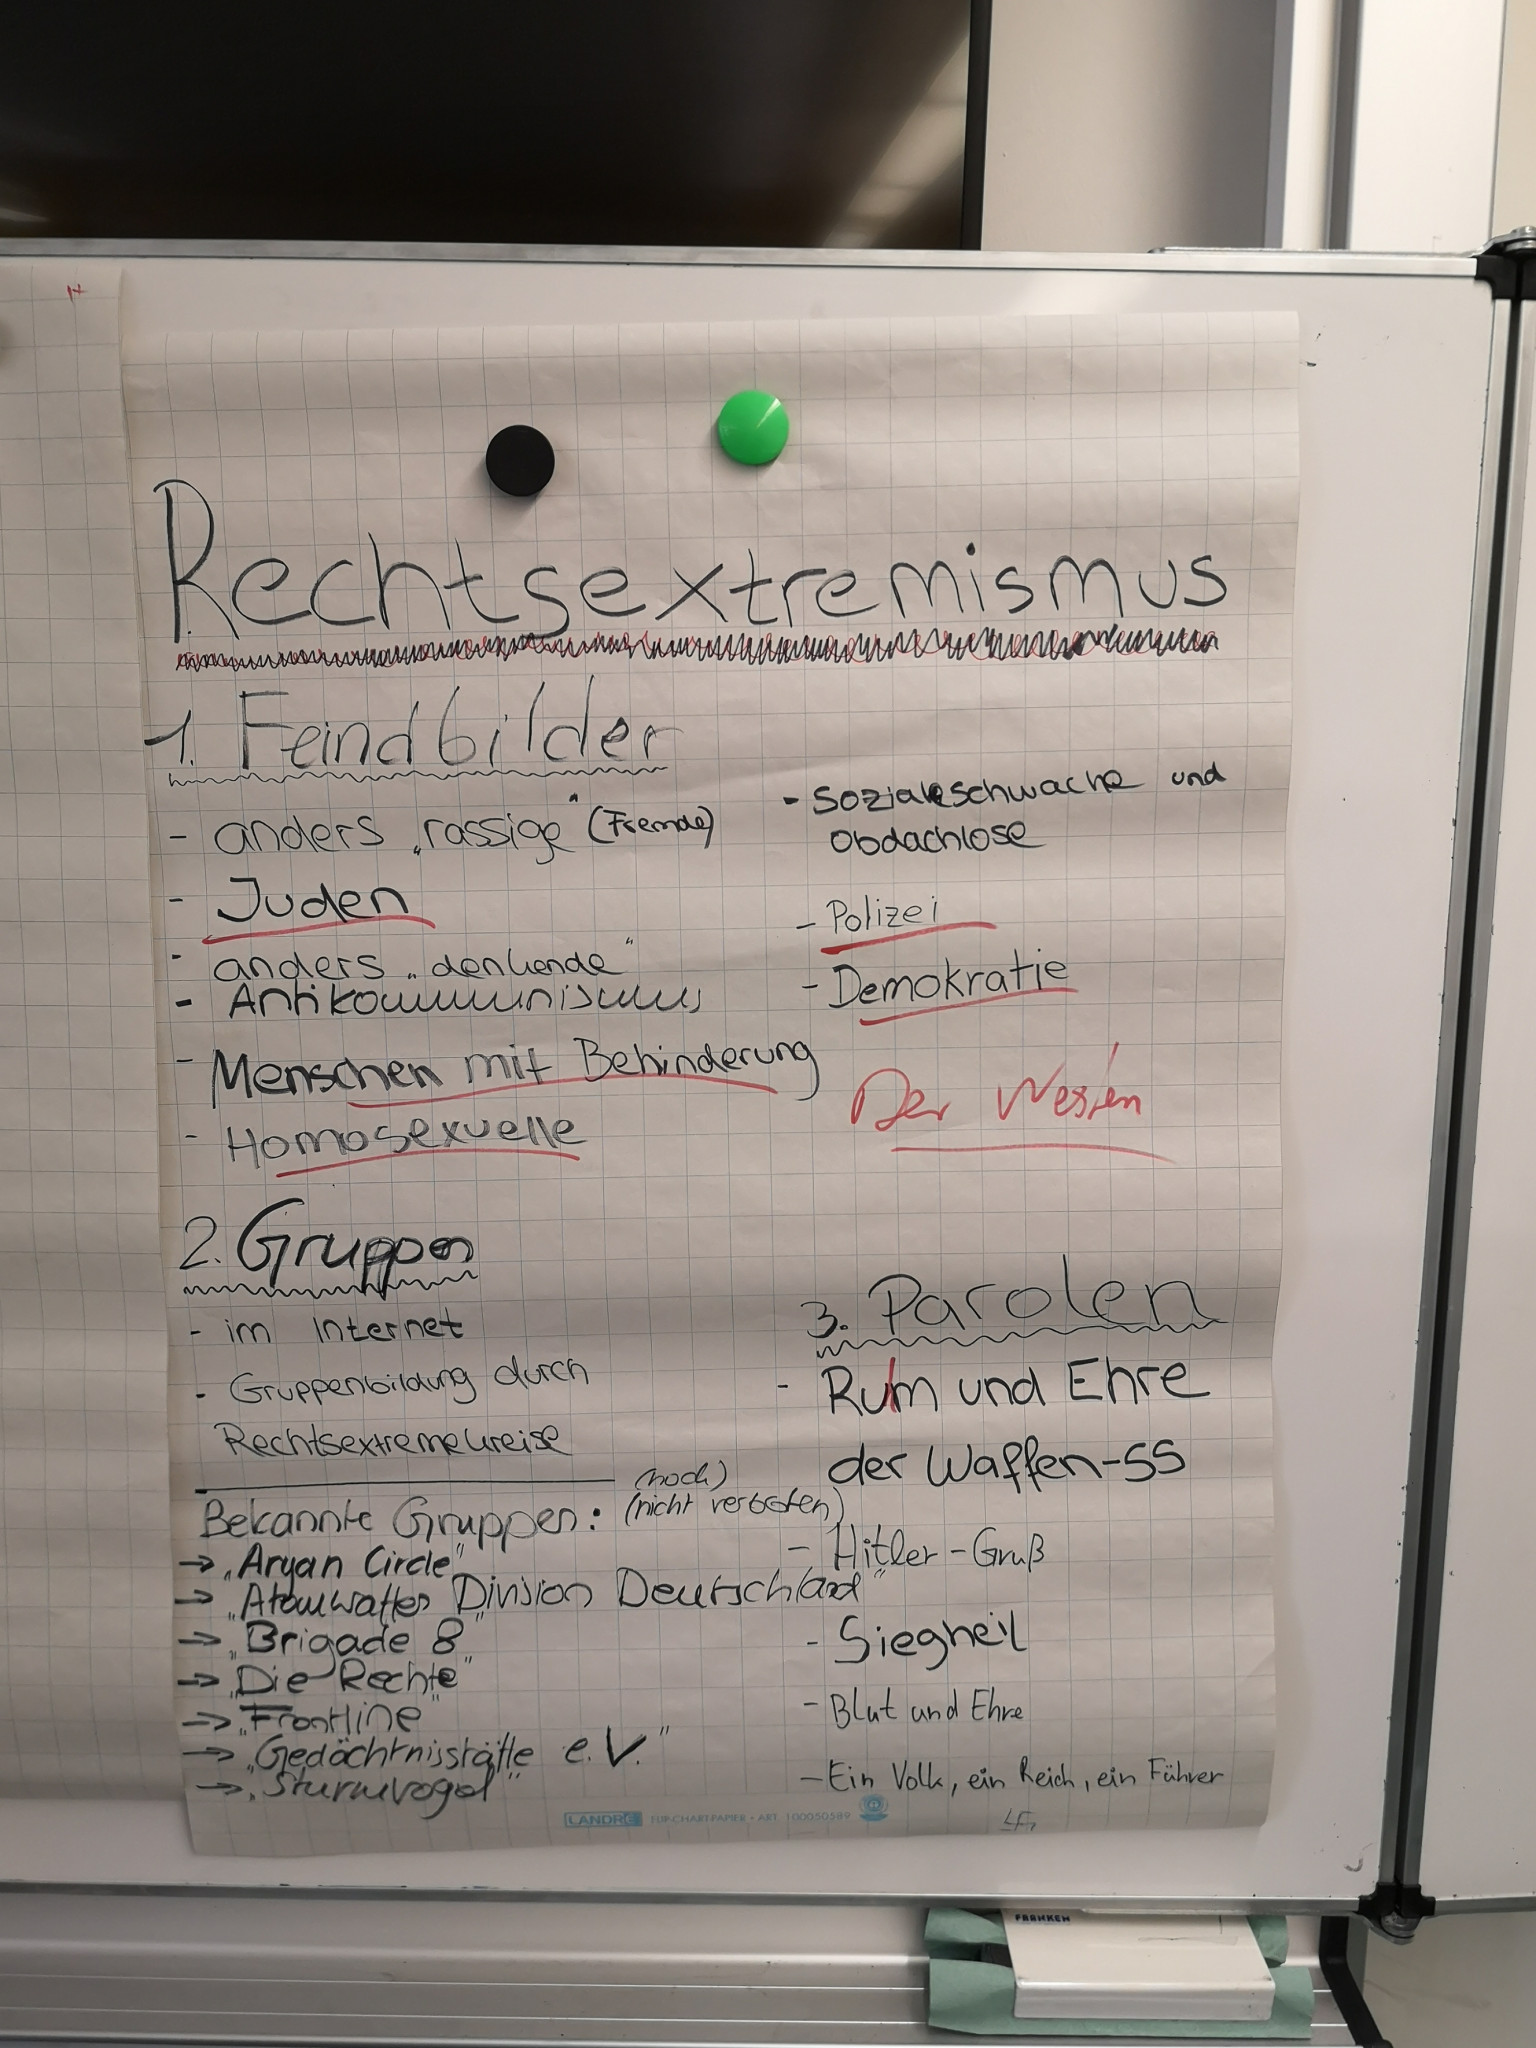 Rechtsextremismus
1. Feindbilder
- anders „rassige" (Fremde)
- Juden
- anders „denkende"
- Antikommunismus
- Menschen mit Behinderung
- Homosexuelle
- Sozialeschwache und
Obdachlose
- Polizei
- Demokratie
Der Westen
2. Gruppen
- im Internet
- Gruppenbildung durch
Rechtsextremekreise
Bekannte Gruppen: (noch)
(nicht verboten)
→ „Aryan Circle"
→ „Atomwaffen Division Deutschland"
→ „Brigade 8"
→ „Die Rechte"
→ „Frontline"
→ „Gedächtnisstätte e.V."
→ „Sturmvogel"
3. Parolen
- Rum und Ehre
der Waffen-SS
- Hitler-Gruß
- Siegheil
- Blut und Ehre
- Ein Volk, ein Reich, ein Führer
LANDRÉ FLIP-CHART-PAPIER • ART. 100050589
FRANKEN